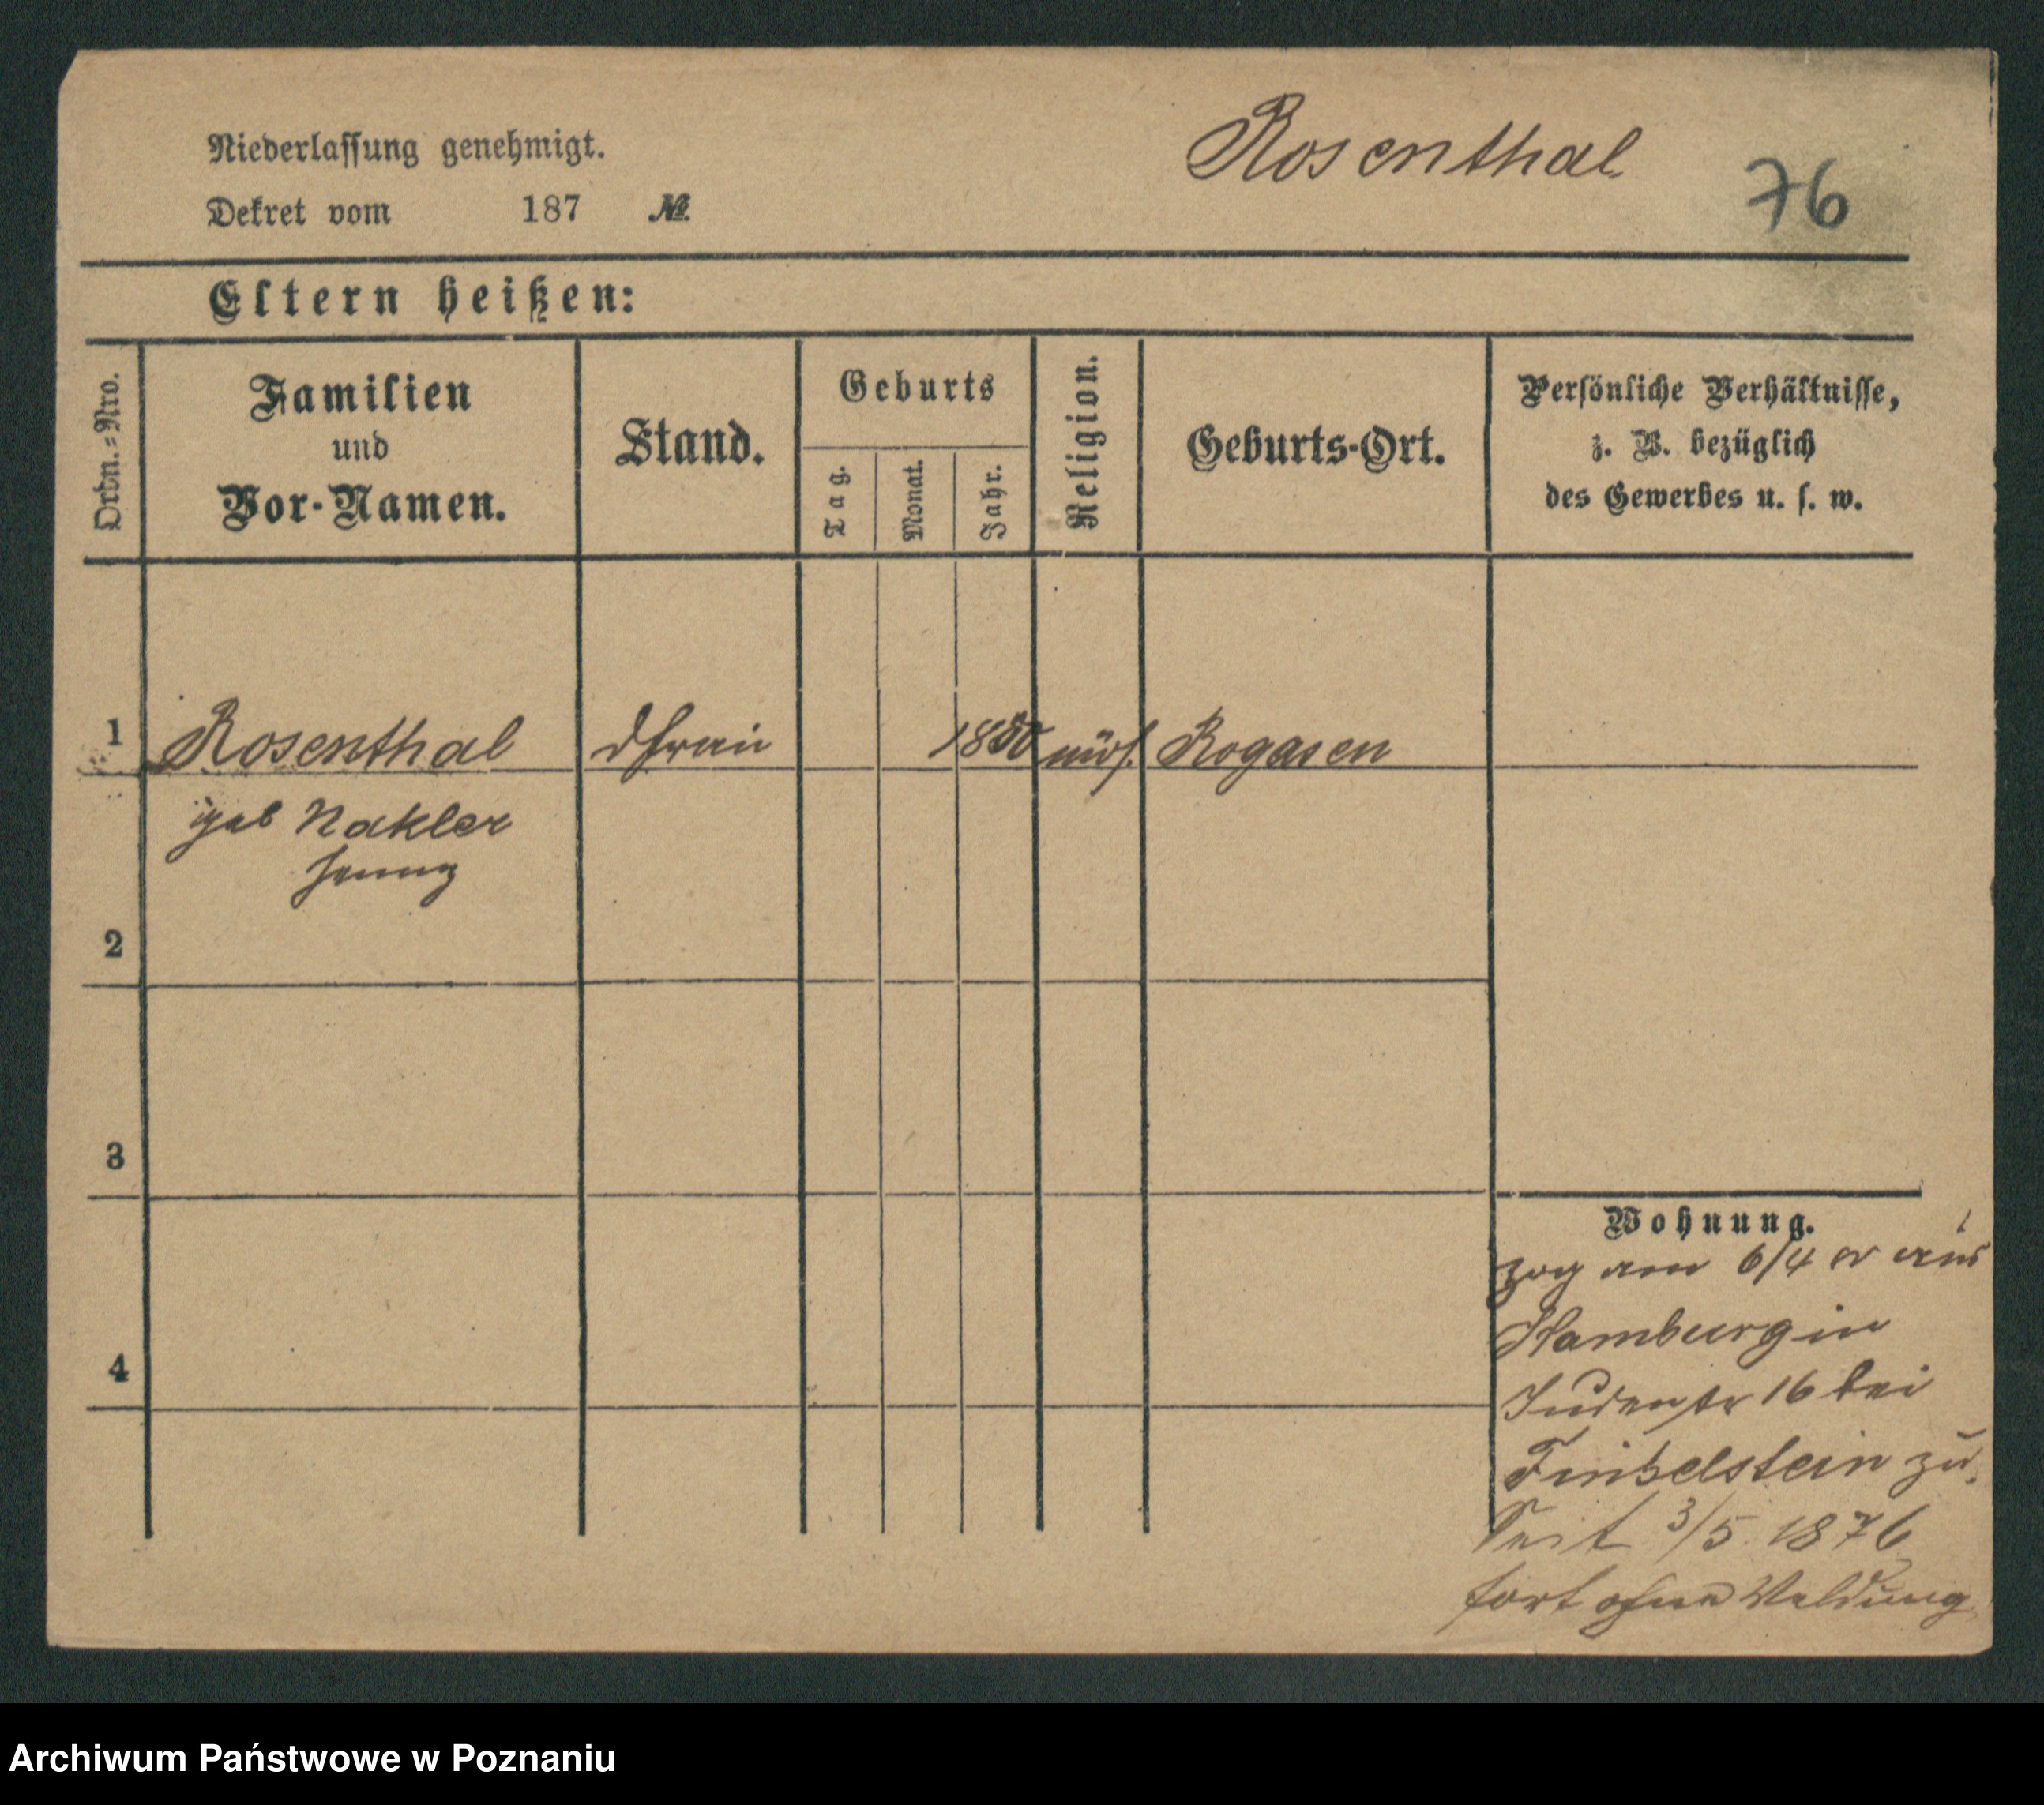 Niederlassung genehmigt.
Rosenthal
76
Dekret vom 187 №
Eltern heißen:
Ordn.-Nro.
Familien
und
Vor-Namen.
Stand.
Geburts
Tag.
Monat.
Jahr.
Religion.
Geburts-Ort.
Persönliche Verhältnisse,
z. B. bezüglich
des Gewerbes u. s. w.
1 Rosenthal 1850 Rogasen
geb Nakler
Jenny
2
3
4
Wohnung.
zog am 6/4 cr aus
Hamburg in
Judenstr 16 bei
Finkelstein zu.
Seit 3/5. 1876
fort ohne Meldung
Archiwum Państwowe w Poznaniu